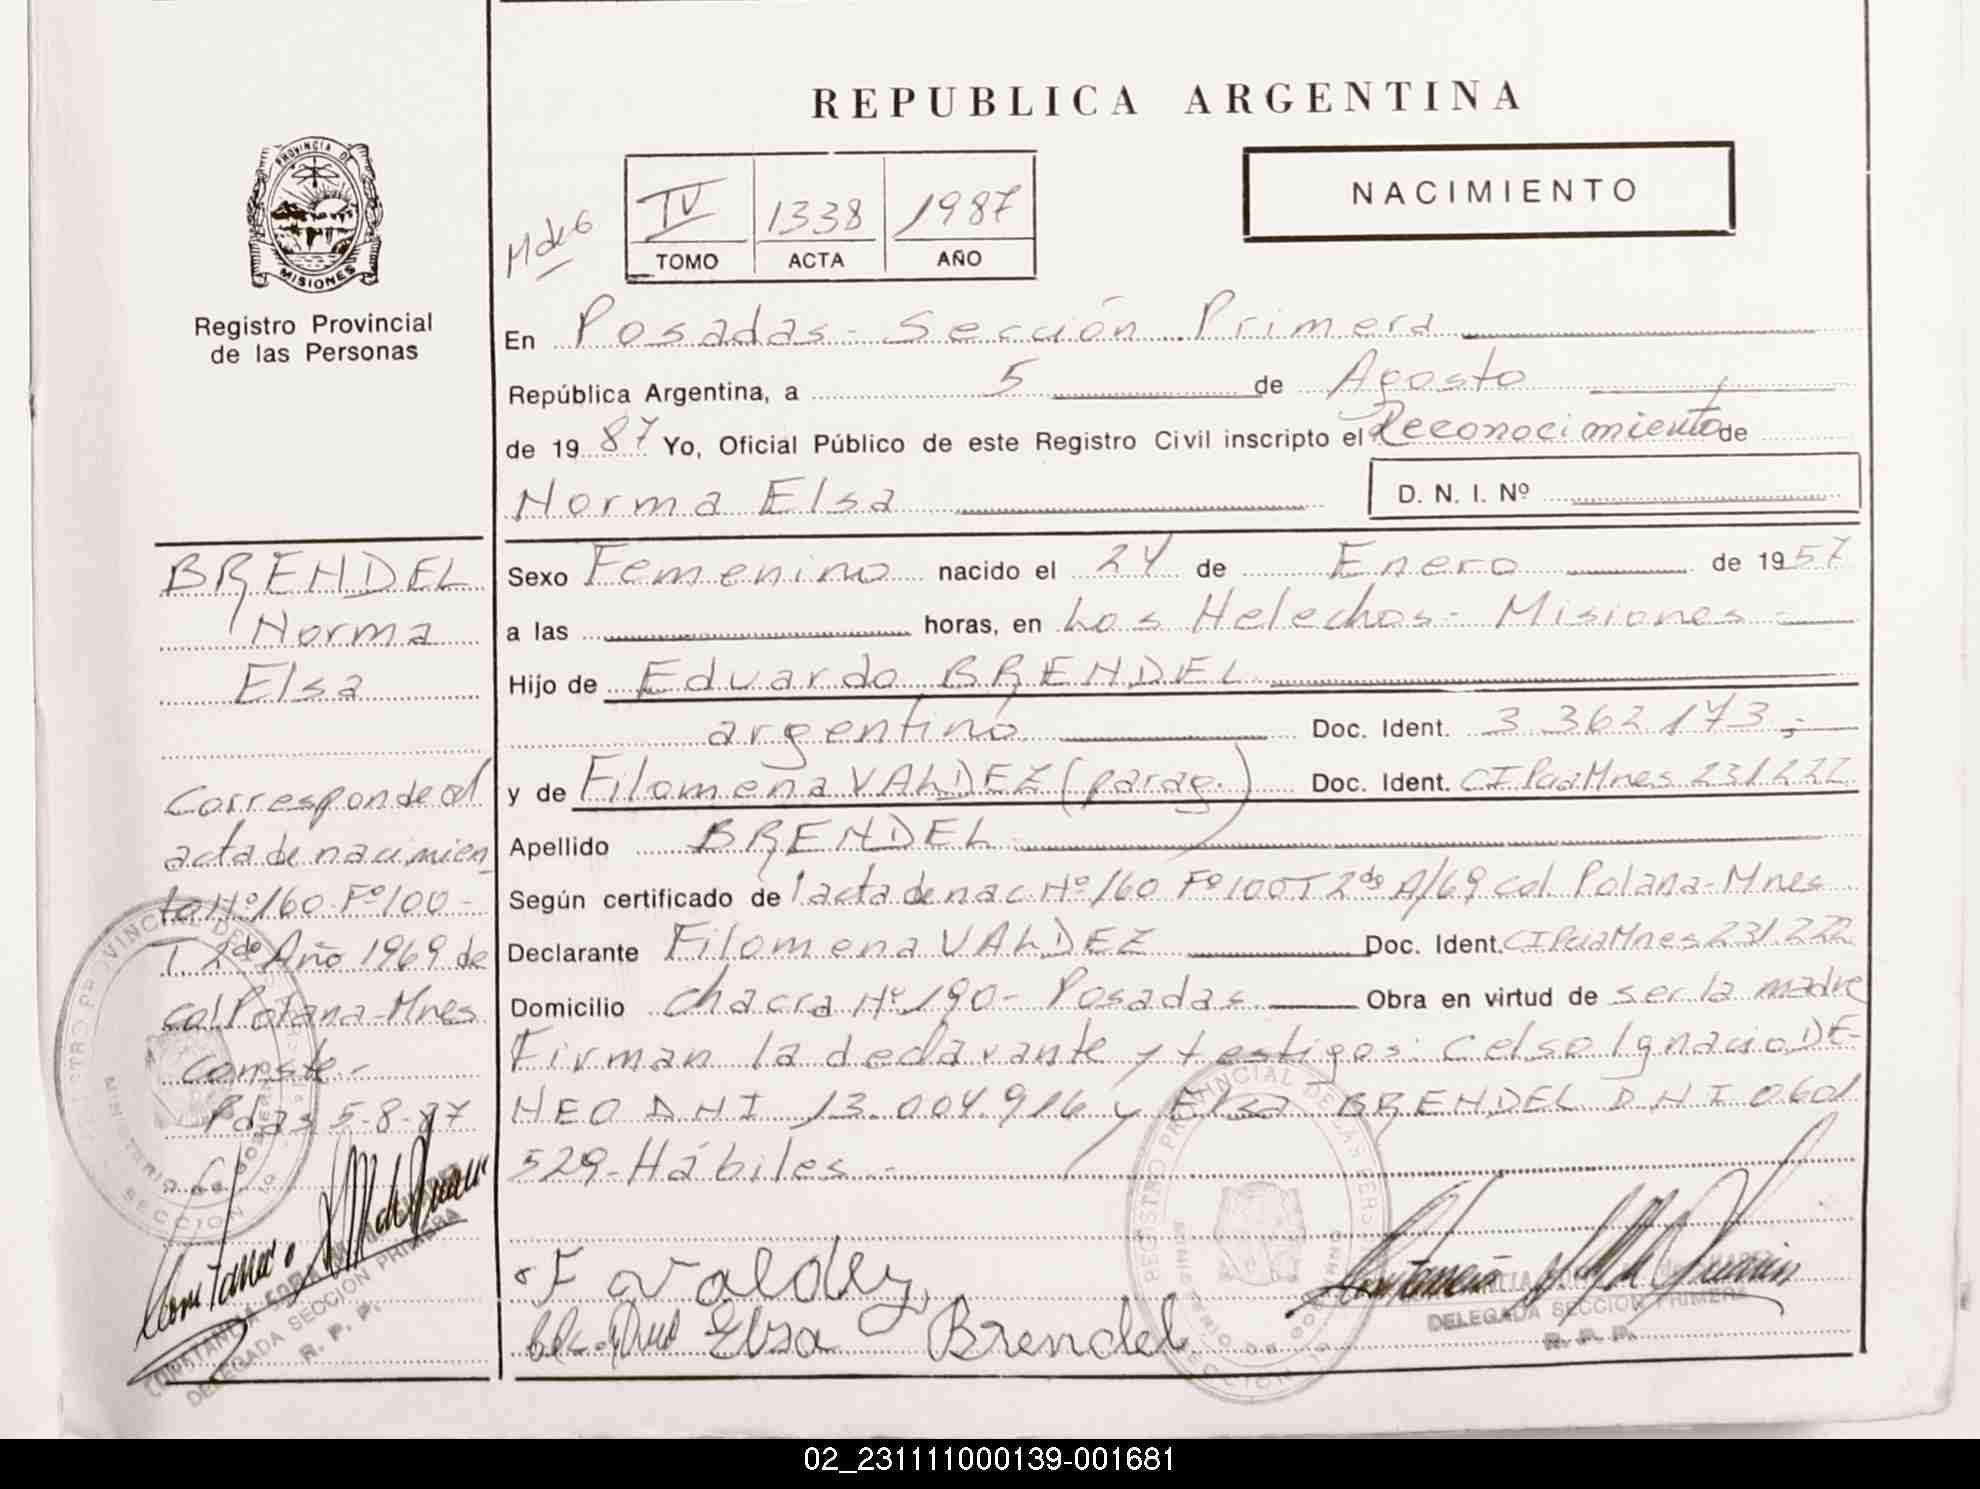 REPUBLICA ARGENTINA
NACIMIENTO
PROVINCIA DE
MISIONES
Registro Provincial
de las Personas
IV 1338 1987
TOMO ACTA AÑO
En Posadas - Sección Primera
República Argentina, a 5 de Agosto
de 1987 Yo, Oficial Público de este Registro Civil inscripto el Reconocimiento de
Norma Elsa D. N. I. Nº
BRENDEL
Norma
Elsa
Corresponde al
acta de nacimien
to Nº 160 Fº 100 -
T. 2do Año 1969 de
col Polana - Mnes
Conste -
Pdas 5-8-87
Sexo Femenino nacido el 24 de Enero de 1957
a las horas, en Los Helechos - Misiones -
Hijo de Eduardo BRENDEL
argentino Doc. Ident. 3.362.173,-
y de Filomena VALDEZ (parag.) Doc. Ident. CI Pcia Mnes 231.222
Apellido BRENDEL
Según certificado de 1 acta de nac Nº 160 Fº 100 T 2do A/69 col Polana - Mnes
Declarante Filomena VALDEZ Doc. Ident. CI Pcia Mnes 231.222
Domicilio Chacra Nº 190 - Posadas Obra en virtud de ser la madre
Firman la declarante y testigos: Celso Ignacio DE-
NEO DNI 13.004.916 y Elsa BRENDEL DNI 0601
529 - Hábiles -
F Valdez
Elsa Brendel
DELEGADA SECCION PRIMERA
R. P. P.
DELEGADA SECCION PRIMERA
R. P. P.
02_231111000139-001681